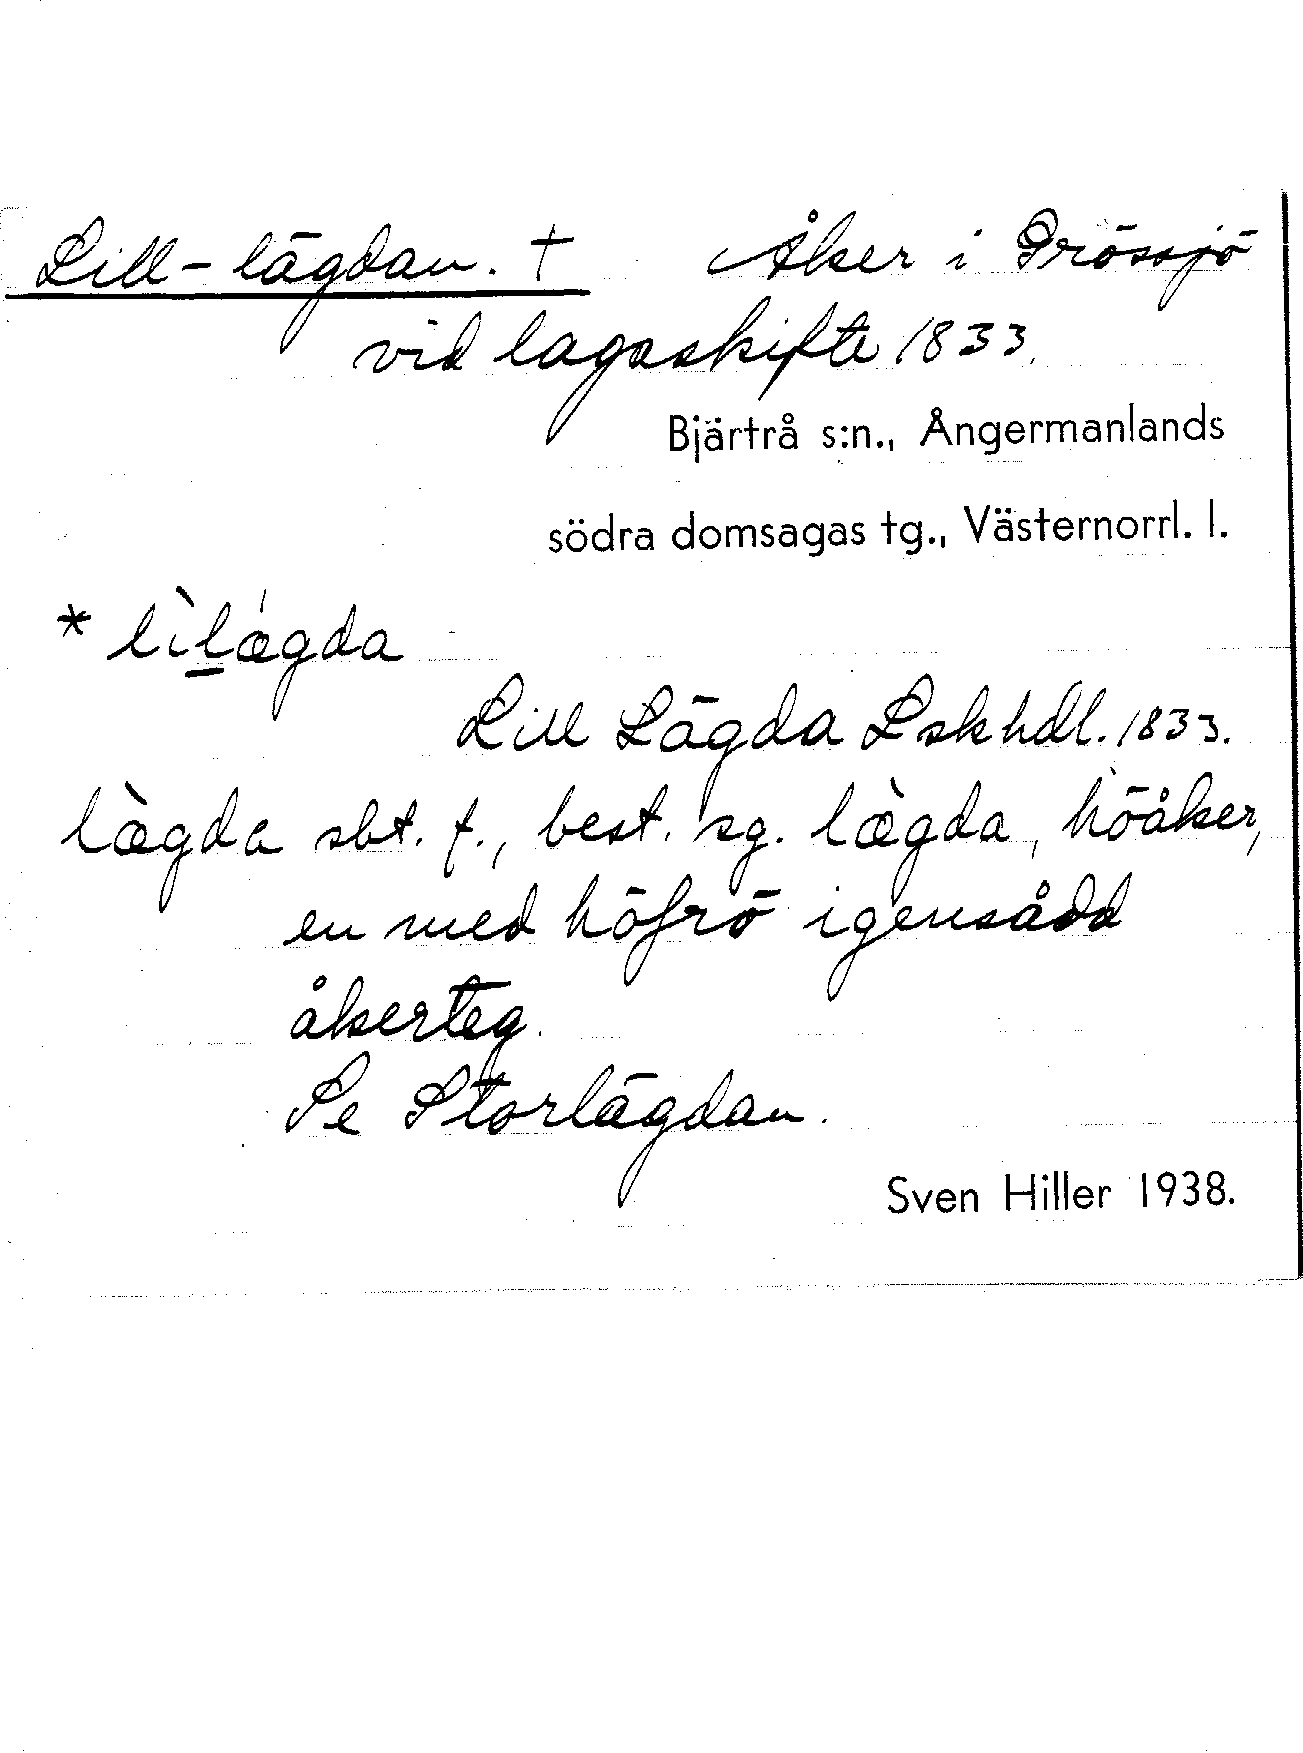 Lill-lägdan. † Åker i Prössjö
vid lagaskifte 1833.
Bjärtrå s:n., Ångermanlands
södra domsagas tg., Västernorrl. l.
* lìlǽgda
Lill Lägda Lskhdl. 1833.
læ̀gda sbt. f., best. sg. læ̀gda, höåker,
en med höfrö igensådd
åkerteg.
Se Storlägdan.
Sven Hiller 1938.